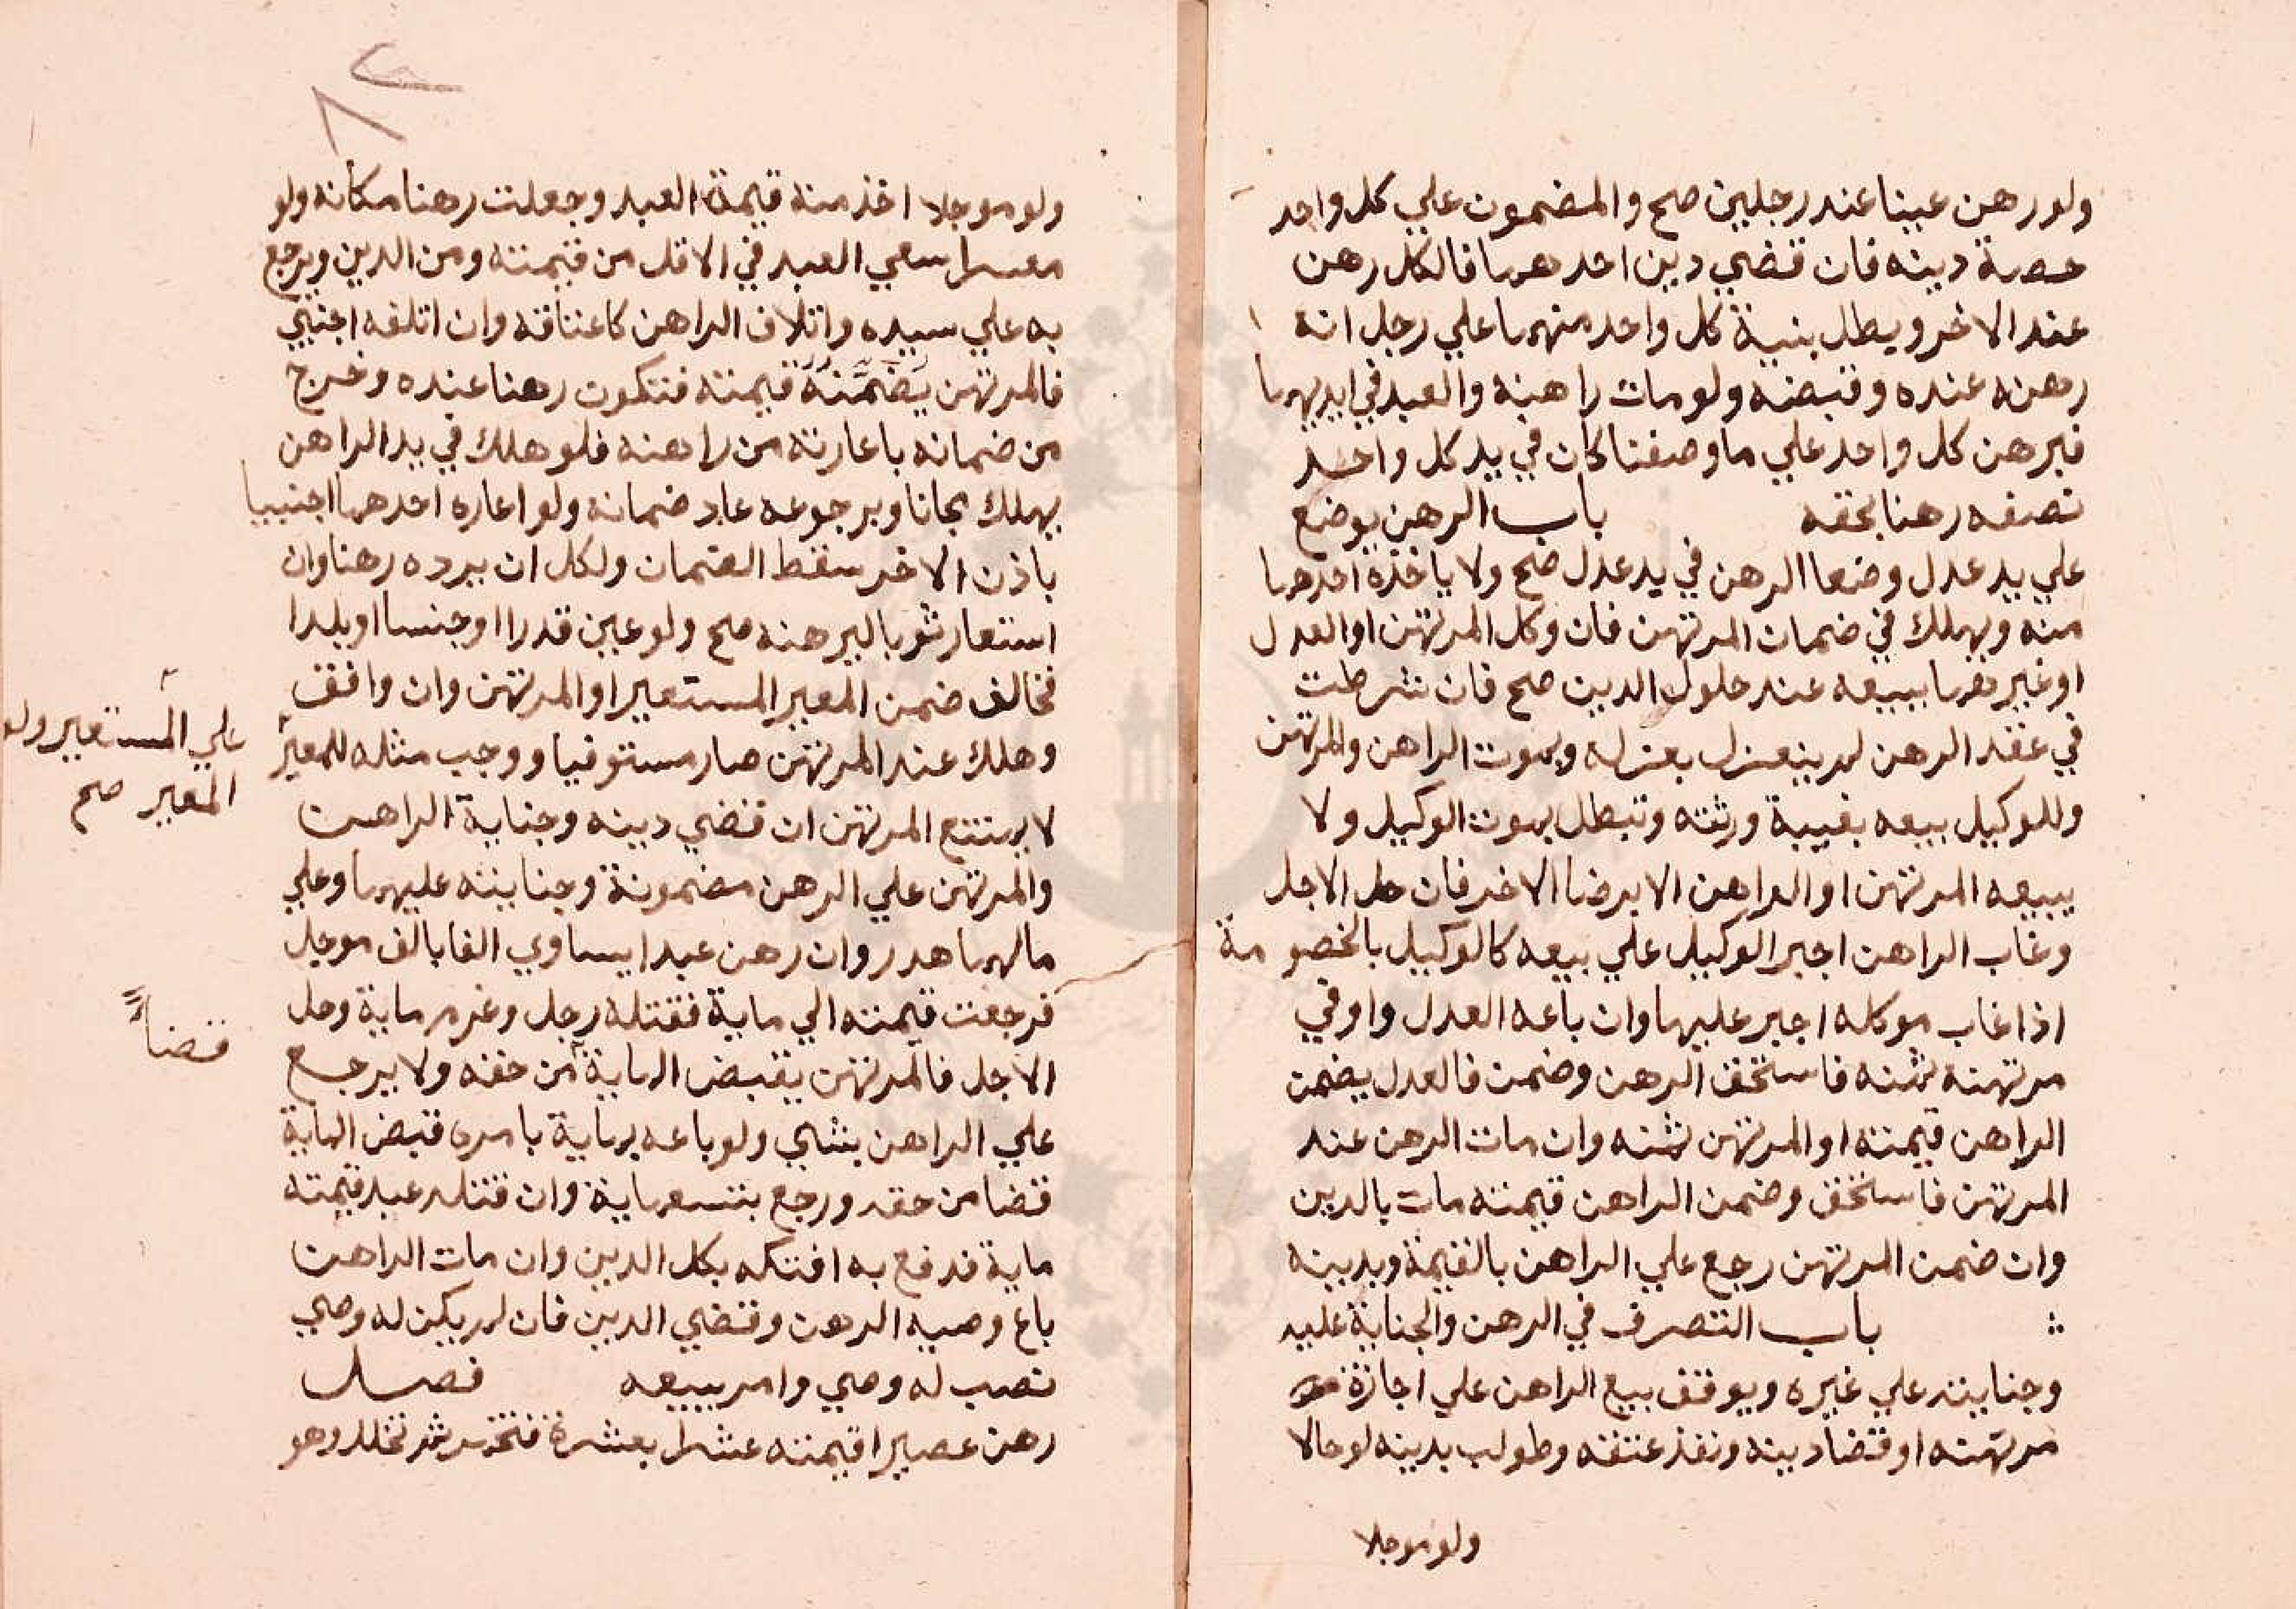 ولو رهن عينا عند رجلين صح والمضمون علي كل واحد
حصة دينه فان قضي دين احدهما فالكل رهن
عند الاخر ويطل بنية كل واحد منهما علي رجل انه
رهنه عنده وقبضه ولو مات راهنه والعبد في ايديهما
فبرهن كل واحد علي ما وصفنا كان في يد كل واحد
نصفه رهنا بحقه باب الرهن يوضع
علي يد عدل وضعا الرهن في يد عدل صح ولا ياخذه احدهما
منه ويهلك في ضمان المرتهن فان وكل المرتهن او العدل
او غيرهما ببيعه عند حلول الدين صح فان شرطت
في عقد الرهن لم ينعزل بعزله وبموت الراهن والمرتهن
وللوكيل بيعه بغيبة ورثته وتبطل بموت الوكيل ولا
يبيعه المرتهن او الراهن الا برضا الاخر فان حل الاجل
وغاب الراهن اجبر الوكيل علي بيعه كالوكيل بالخصومة
اذا غاب موكله اجبر عليها وان باعه العدل واوفي
مرتهنه ثمنه فاستحق الرهن وضمن فالعدل يضمن
الراهن قيمته او المرتهن ثمنه وان مات الرهن عند
المرتهن فاستحق وضمن الراهن قيمته مات بالدين
وان ضمن المرتهن رجع علي الراهن بالقيمة وبدينه
باب التصرف في الرهن والجناية عليه
وجنايته علي غيره ويوقف بيع الراهن علي اجازة
مرتهنه او قضا دينه ونفذ عتقه وطولب بدينه لو حالا
ولو موجلا
ولو موجلا اخذ منه قيمة العبد وجعلت رهنا مكانه ولو
معسرا سعي العبد في الاقل من قيمته ومن الدين ويرجع
به علي سيده واتلاف الراهن كاعتاقه وان اتلفه اجنبي
فالمرتهن يضمنه قيمته فتكون رهنا عنده وخرج
من ضمانه باعارته من راهنه فلو هلك في يد الراهن
يهلك مجانا وبرجوعه عاد ضمانه ولو اعاره احدهما اجنبيا
باذن الاخر سقط الضمان ولكل ان يرده رهنا وان
استعار ثوبا ليرهنه صح ولو عين قدرا او جنسا او بلدا
فخالف ضمن المعير المستعير او المرتهن وان وافق
وهلك عند المرتهن صار مستوفيا ووجب مثله للمعير
علي المستعير ولو
المعير صح
لا يمتنع المرتهن ان قضي دينه وجناية الراهن
والمرتهن علي الرهن مضمونة وجنايته عليهما وعلي
مالهما هدر وان رهن عبدا يساوي الفا بالف موجل
فرجعت قيمته الي ماية فقتله رجل وغرم ماية وحل
الاجل فالمرتهن يقبض الماية من حقه ولا يرجع
قضاً
علي الراهن بشي ولو باعه بماية بامره قبض الماية
قضا من حقه ورجع بتسعماية وان قتله عبد قيمته
ماية فدفع به افتكه بكل الدين وان مات الراهن
باع وصيه الرهن وقضي الدين فان لم يكن له وصي
نصب له وصي وامر ببيعه فصل
رهن عصيرا قيمته عشرا بعشرة فتخمر ثم تخلل وهو